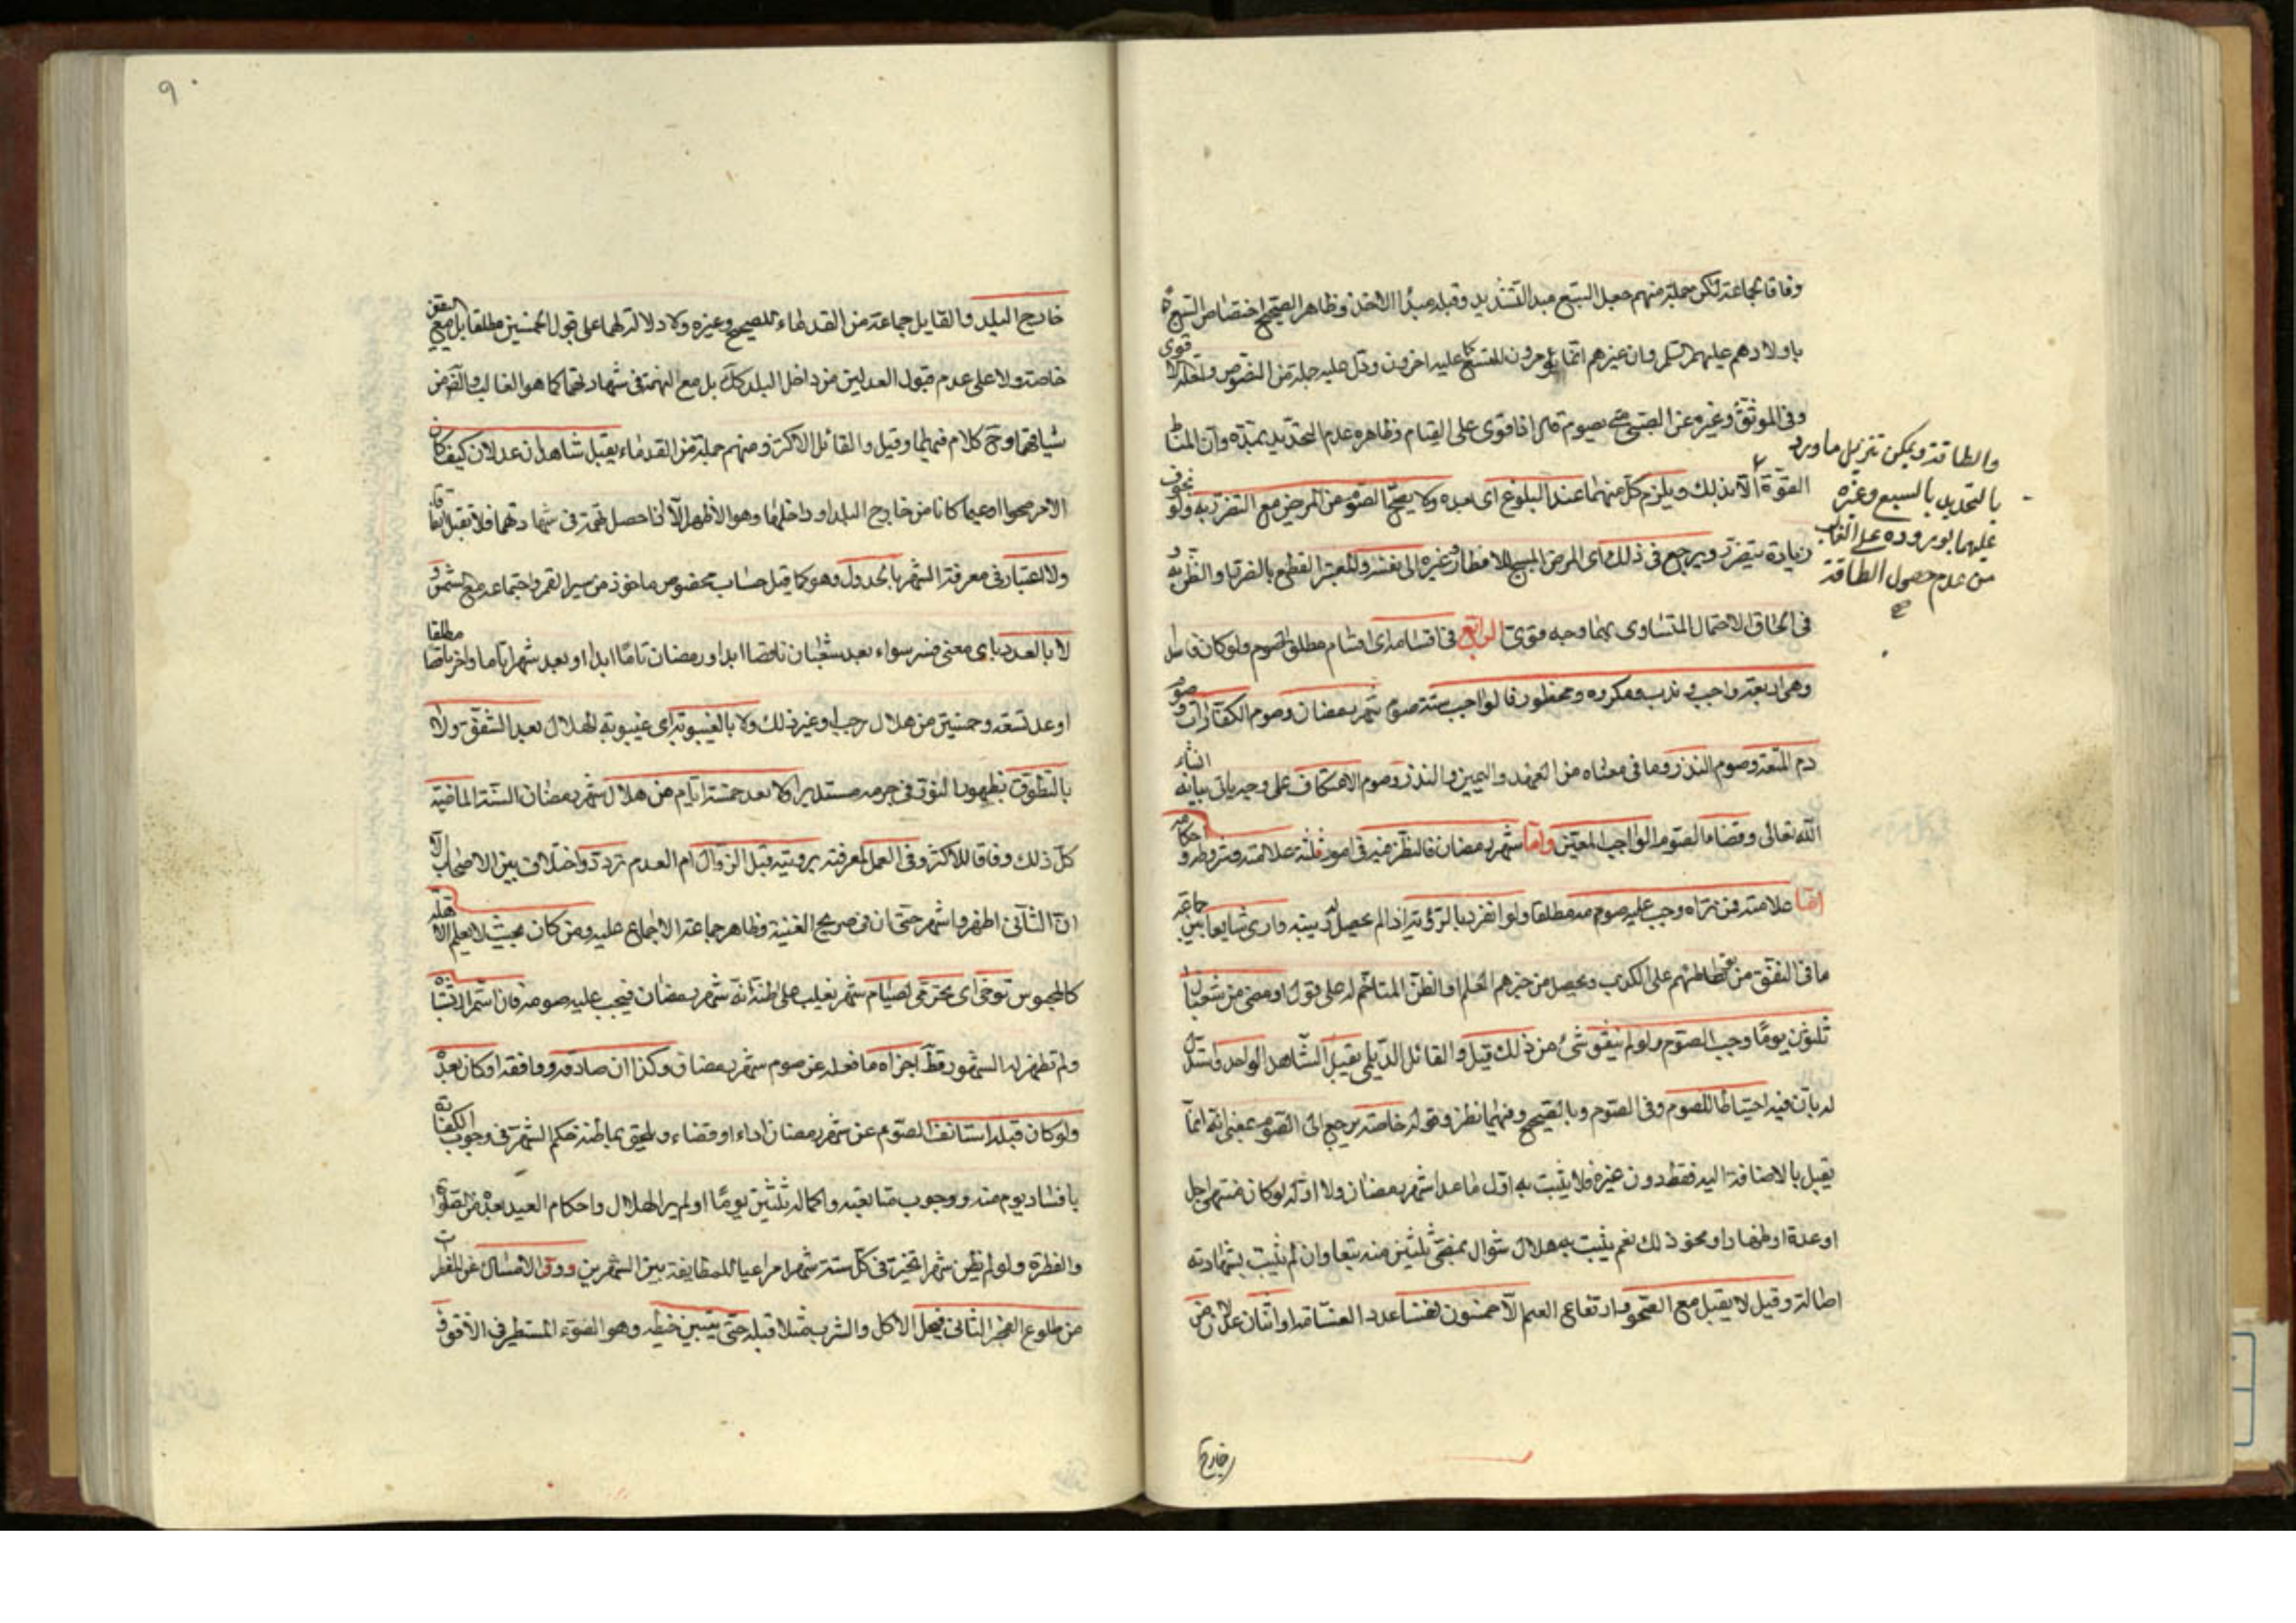 وفاقا لجماعة لكن جملة منهم جعل السبع مبدأ التشديد وقبله مبدأ الاخذ وظاهر الصحيح اختصاص السبع
باولادهم عليهم السلم وان غيرهم انما يؤمرون لتسع كما عليه اخرون ودل عليه جملة من النصوص ولعله الاقوى
وفي الموثق وغيره عن الصبي متى يصوم قال اذا قوى على الصيام وظاهره عدم التحديد بمدة وان المناط
القوة الا بذلك ويلزم كل منهما عند البلوغ اى بعده ولا يصح الصوم من المريض مع التضرر به ولو بخوف
زيادة يتضرر ويرجع في ذلك اى المرض المبيح للافطار وغيره الى نفسه والمعتبر القطع بالضرر او الظن به و
في الحاق الاحتمال المتساوى بهما وجه قوى الرابع في اقسامه اى اقسام مطلق الصوم ولو كان فاسدا
وهي اربعة واجب وندب ومكروه ومحظور فالواجب ستة صوم شهر رمضان وصوم الكفارات وصوم
دم المتعة وصوم النذر وما في معناه من العهد واليمين والنذر وصوم الاعتكاف على وجه ياتي بيانه انشاء
الله تعالى وقضاء الصوم الواجب المعين واما شهر رمضان فالنظر فيه في امور ثلثة علامته وشروطه و احكامه
اما علامته فمن راه وجب عليه صومه مطلقا ولو انفرد بالرؤية اذا لم يحصل له ريبة وارى شايعا بين جماعة
ما في النفق من تواطئهم على الكذب ويحصل من خبرهم العلم او الظن المتاخم له على قول او مضى من شعبان
ثلثون يوما وجب الصوم ولو لم يتفق شئ من ذلك قيل والقائل الديلمي يقبل الشاهد الواحد واستدل
له بان فيه احتياطا للصوم وفي الصوم وبالصحيح وفيهما نظر وقوله خاصة يرجع الى الصوم بمعنى انه انما
يقبل بالاضافة اليه فقط دون غيره فلا يثبت به اول ما عدا شهر رمضان ولا اوله لو كان منتهى اجل
او عدة او ظهار او نحو ذلك نعم يثبت به هلال شوال بمضى ثلثين منه تبعا وان لم يثبت بشهادته
اصالة وقيل لا يقبل مع الصحو وارتفاع العلم الا خمسون نفسا عدد القسامة او اثنان عدلان من
خارج
والطاقة ويمكن تنزيل ما ورد
بالتحديد بالسبع وغيره
عليها بوروده على الغالب
من عدم حصول الطاقة
٩٠
خارج البلد والقايل جماعة من القدماء للصحيح وغيره ولا دلالة لهما على قبول الخمسين مطلقا بل مع
خاصة ولا على عدم قبول العدلين من داخل البلد كك بل مع التهمة في شهادتهما كما هو الغالب
كلام فيهما وقيل والقائل الاكثر ومنهم جملة من القدماء يقبل شاهدان عدلان كيف كان
الامر صحوا او غيما كانا من خارج البلد او داخلها وهو الاظهر الا اذا حصل تهمة في شهادتهما فلا تقبل اتفاقا
ولا اعتبار في معرفة الشهر بالجدول وهو كما قيل حساب مخصوص ماخوذ من سير القمر واجتماعه مع الشمس و
لا بالعدد باى معنى فسر سواء بعد شعبان ناقصا ابدا ورمضان تاما ابدا او بعد شهر تاما واخر ناقصا مطلقا
او عد تسعة وخمسين من هلال رجب او غير ذلك ولا بالغيبوبة اى غيبوبة الهلال بعد الشفق ولا
بالتطوق بظهور النور في جرمه مستديرا ولا بعد خمسة ايام من هلال شهر رمضان السنة الماضية
كل ذلك وفاقا للاكثر وفي العمل لمعرفته برويته قبل الزوال ام العدم تردد واختلاف بين الاصحاب الا
ان الثاني اظهر واشهر حتى ان في صريح الغنية وظاهر جماعة الاجماع عليه ومن كان بحيث لا يعلم الاهلة
كالمحبوس توخى اى تحرى في صيام شهر يغلب على ظنه انه شهر رمضان فيجب عليه صومه فان استمر الاشتباه
ولم تظهر له الشهور قط اجزاه ما فعله عن صوم شهر رمضان وكذا ان صادفه ووافقه او كان بعده
ولو كان قبله استانف الصوم عن شهر رمضان اداء او قضاء ويلحق بما ظنه حكم الشهر في وجوب الكفارة
بافساد يوم منه ووجوب متابعته واكماله ثلثين يوما لو لم ير الهلال واحكام العيد بعده من الصلوة
والفطرة ولو لم يظن شهرا تخير في كل سنة شهرا مراعيا للمطابقة بين الشهرين ووقت الامساك عن المفطرات
من طلوع الفجر الثاني فيحل الاكل والشرب مثلا قبله حتى يتبين خيطه وهو الضوء المستطير في الافق و